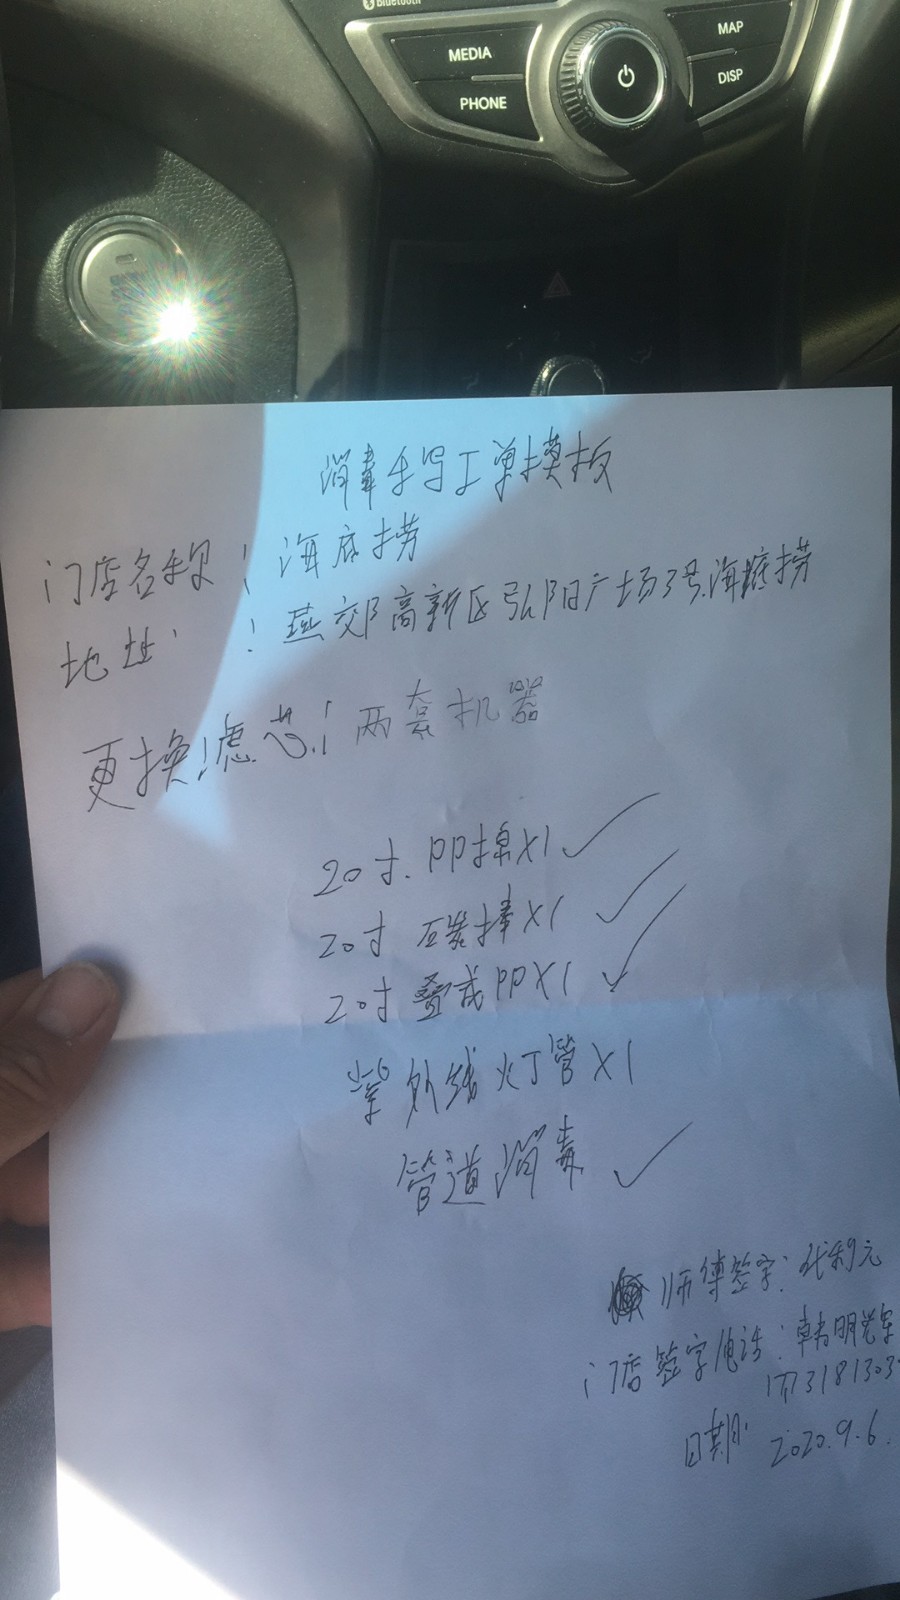 Bluetooth
MEDIA
MAP
PHONE
DISP
消毒手写工单模板
门店名称：海底捞
地址：燕郊高新区弘阳广场3号海底捞
更换滤芯：两套机器
20寸.PP棉X1✓
20寸 碳棒X1✓
20寸 叠成PPX1✓
紫外线灯管X1
管道消毒✓
师傅签字：代利元
门店签字/电话：韩明
日期 2020.9.6.